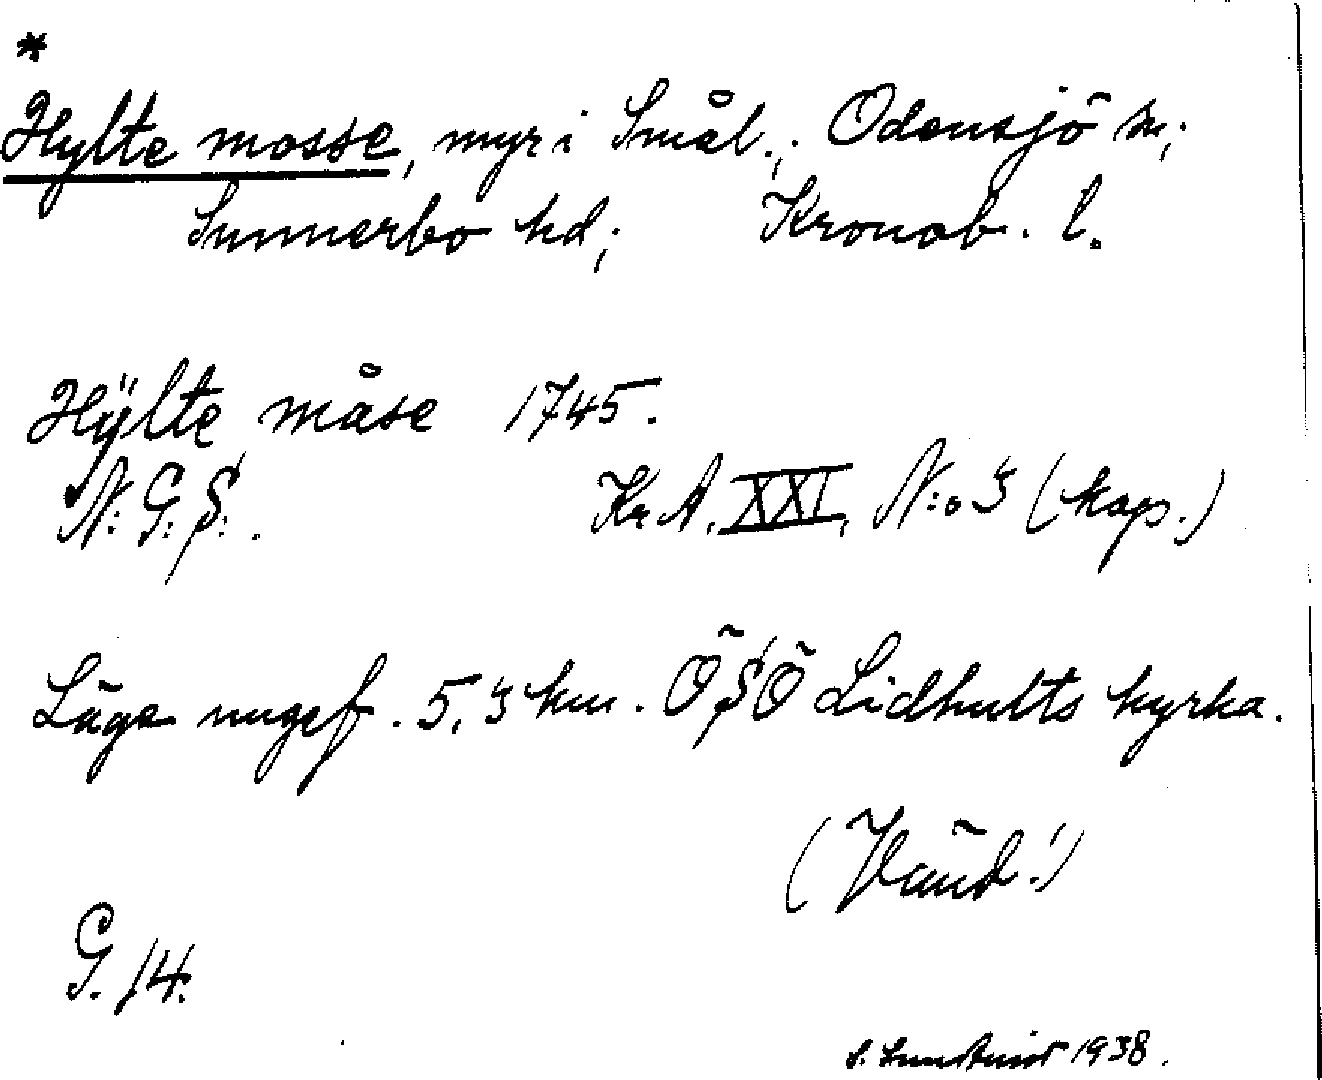 *
Hylte mosse, myr i Smål.; Odensjö sn;
Sunnerbo hd; Kronob. l.
Hÿlte måse 1745.
N: G: S: . Kr A. XXI, N:o 3 (kop.)
Läge ungef. 5,3 km. ÖSÖ Lidhults kyrka.
G. 14.
1938.